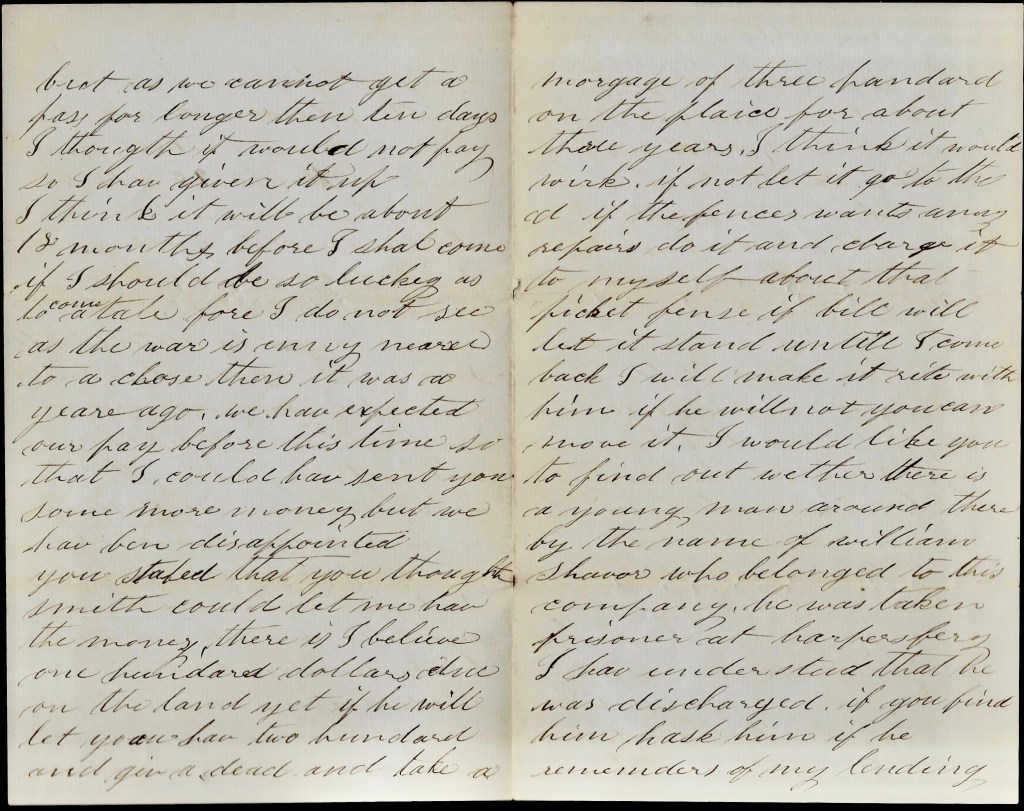 but as we cannot get a
pass for longer then ten days
I thougth it would not pay
so I hav given it up
I think it will be about
18 months before I shal come
if I should be so luckey as
to come atale fore I do not see
as the war is enny nearer
to a close then it was a
yeare ago. we hav expected
our pay before this time so
that I could hav sent you
some more money but we
hav ben disappointed
you stated that you thought
smith could let me hav
the money, there is I believe
one hundard dollars due
on the land yet if he will
let you hav two hundard
and giv a dead and take a
morgage of three hundard
on the plaice for about
three years, I think it would
wirk. if not let it go to the
d if the fences wants anny
repairs do it and charge it
to my self about that
picket fense if bill will
let it stand untill I come
back I will make it rite with
him if he will not you can
move it. I would like you
to find out wether there is
a young man around there
by the name of william
shavor who belonged to this
company. he was taken
prisoner at harpersberg
I hav understud that he
was discharged. if you find
him hask him if he
rememders of my lending